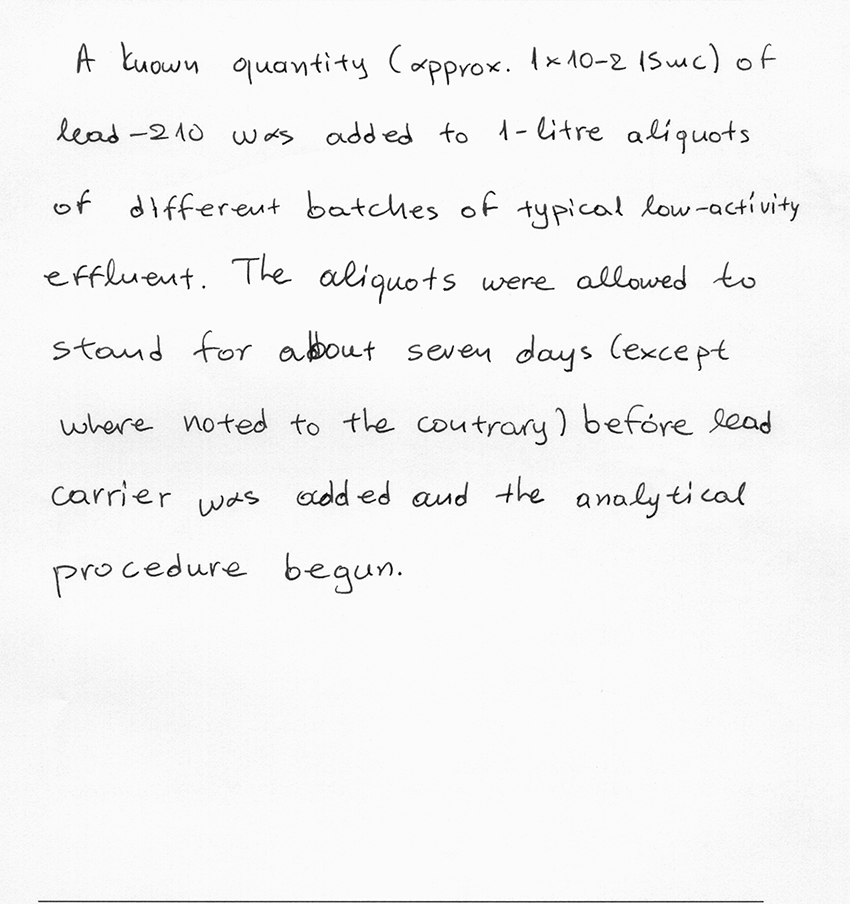 A known quantity (approx. 1×10-2 15mc) of
lead-210 was added to 1-litre aliquots
of different batches of typical low-activity
effluent. The aliquots were allowed to
stand for about seven days (except
where noted to the contrary) before lead
carrier was added and the analytical
procedure begun.